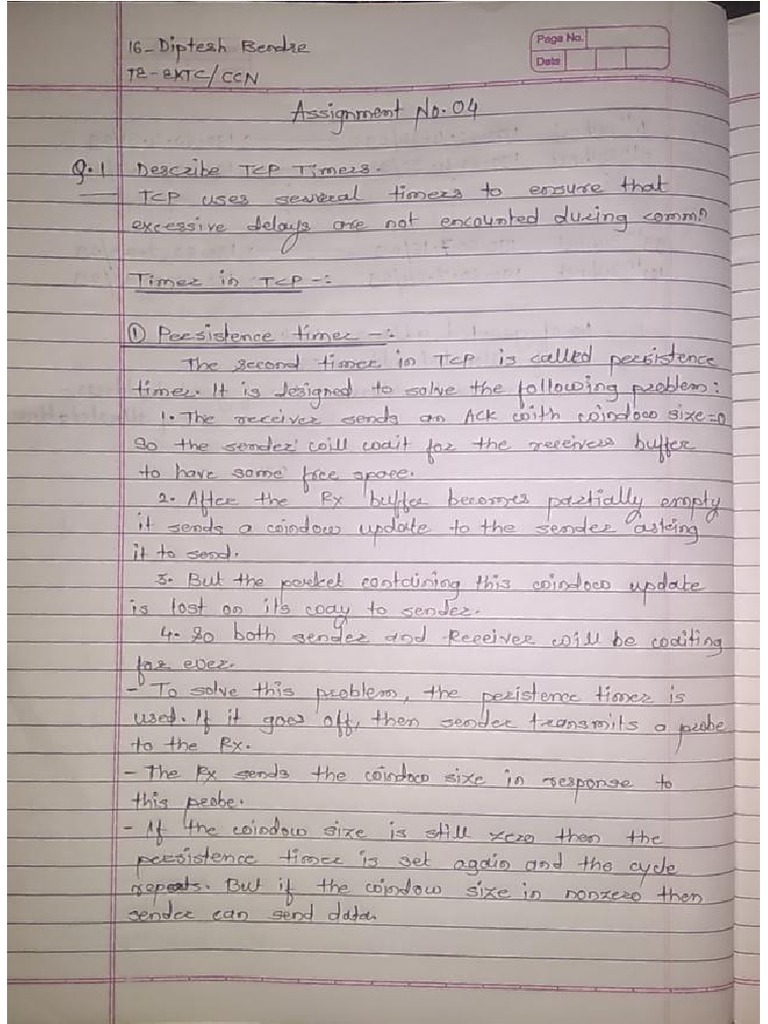 16- Diptesh Bendre
TE-EXTC/CCN
Page No.
Date
Assignment No.04
Q.1 Describe TCP Timers.
TCP uses several timers to ensure that
excessive delays are not encounted during commn
Timer in TCP -:
① Persistence timer -:
The second timer in TCP is called persistence
timer. It is designed to solve the following problem:
1. The receiver sends an ACK with window size=0
So the sender will wait for the receivers buffer
to have some free space.
2. After the Rx buffer becomes partially empty
it sends a window update to the sender asking
it to send.
3. But the packet containing this window update
is lost on its way to sender.
4. So both sender and Receiver will be waiting
for ever.
- To solve this problem, the peristence timer is
used. If it goes off, then sender transmits a probe
to the Rx.
- The Rx sends the window size in response to
this probe.
- If the window size is still zero then the
persistence timer is set again and the cycle
repeats. But if the window size in nonzero then
sender can send data.